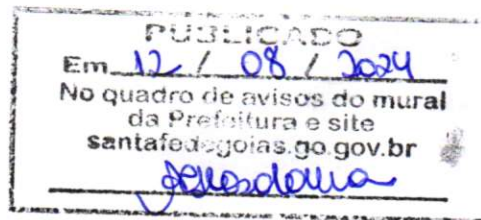 PUBLICADO
Em 12 / 08 / 2024
No quadro de avisos do mural
da Prefeitura e site
santafedegoias.go.gov.br